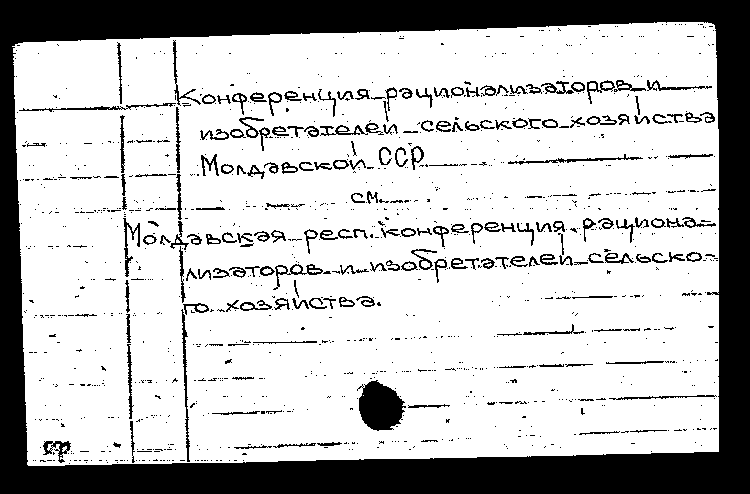 Конференция рационализаторов и
изобретателей сельского хозяйства
Молдавской ССР
см.
Молдавская респ. конференция рациона-
лизаторов и изобретателей сельско-
го хозяйства.
ср